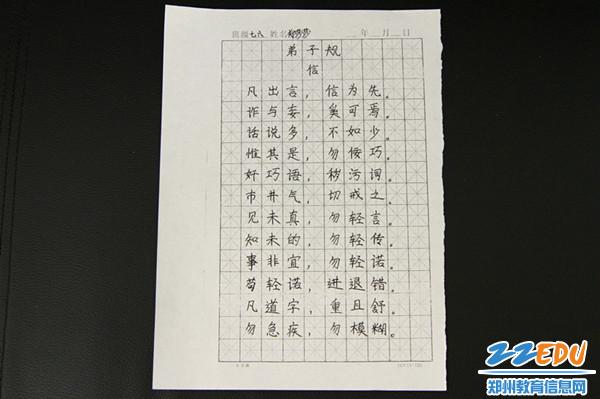 班级 七八 姓名 年 月 日
弟子规
信
凡出言，信为先。
诈与妄，奚可焉。
话说多，不如少。
惟其是，勿佞巧。
奸巧语，秽污词。
市井气，切戒之。
见未真，勿轻言。
知未的，勿轻传。
事非宜，勿轻诺。
苟轻诺，进退错。
凡道字，重且舒。
勿急疾，勿模糊。
ZZEDU
郑州教育信息网